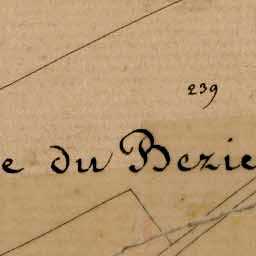 239
e du Bezie